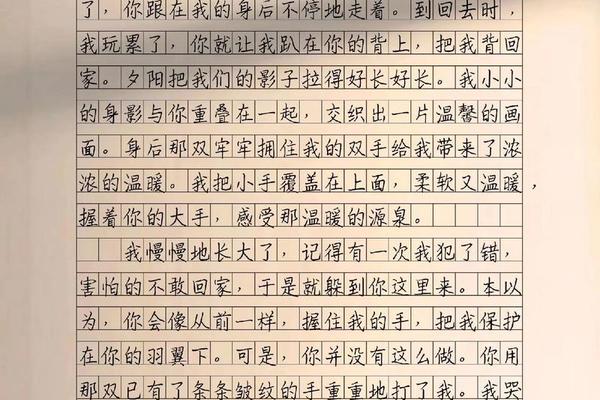 了，你跟在我的身后不停地走着。到回去时，
我玩累了，你就让我趴在你的背上，把我背回
家。夕阳把我们的影子拉得好长好长。我小小
的身影与你重叠在一起，交织出一片温馨的画
面。身后那双牢牢拥住我的双手给我带来了浓
浓的温暖。我把小手覆盖在上面，柔软又温暖，
握着你的大手，感受那温暖的源泉。
我慢慢地长大了，记得有一次我犯了错，
害怕的不敢回家，于是就躲到你这里来。本以
为，你会像从前一样，握住我的手，把我保护
在你的羽翼下。可是，你并没有这么做。你用
那双已有了条条皱纹的手重重地打了我。我哭